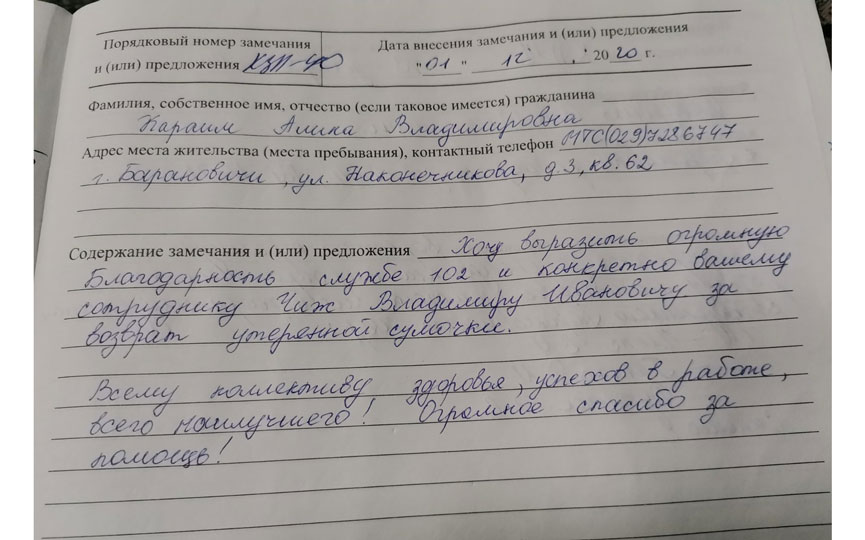 Порядковый номер замечания
и (или) предложения КЗП-40
Дата внесения замечания и (или) предложения
"01" 12 2020 г.
Фамилия, собственное имя, отчество (если таковое имеется) гражданина
Караим Алина Владимировна
Адрес места жительства (места пребывания), контактный телефон МТС(029)7286747
г. Барановичи, ул. Наконечникова, д.3, кв. 62
Содержание замечания и (или) предложения Хочу выразить огромную
Благодарность службе 102 и конкретно вашему
сотруднику Чиж Владимиру Ивановичу за
возврат утерянной сумочки.
Всему коллективу здоровья, успехов в работе,
всего наилучшего! Огромное спасибо за
помощь!